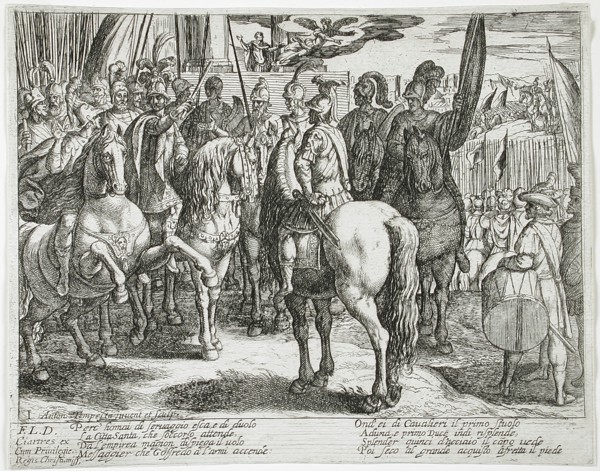 I
Anton. Tempesta invent et sculp.
F.L.D.
Ciartres ex
Cum Privilegio
Regis Christianiss.
Perc' homai di servaggio esca, e di duolo
La Città Santa, che soccorso attende,
Da l'empirea magion, dispiega il volo
Messaggier che Gofredo a l'armi accende
Ond' ei di Cavalieri il primo stuolo
Aduna, e primo Duce indi risplende
Splender quinci d'
il capo
Poi seco al grande acquisto affretta il piede